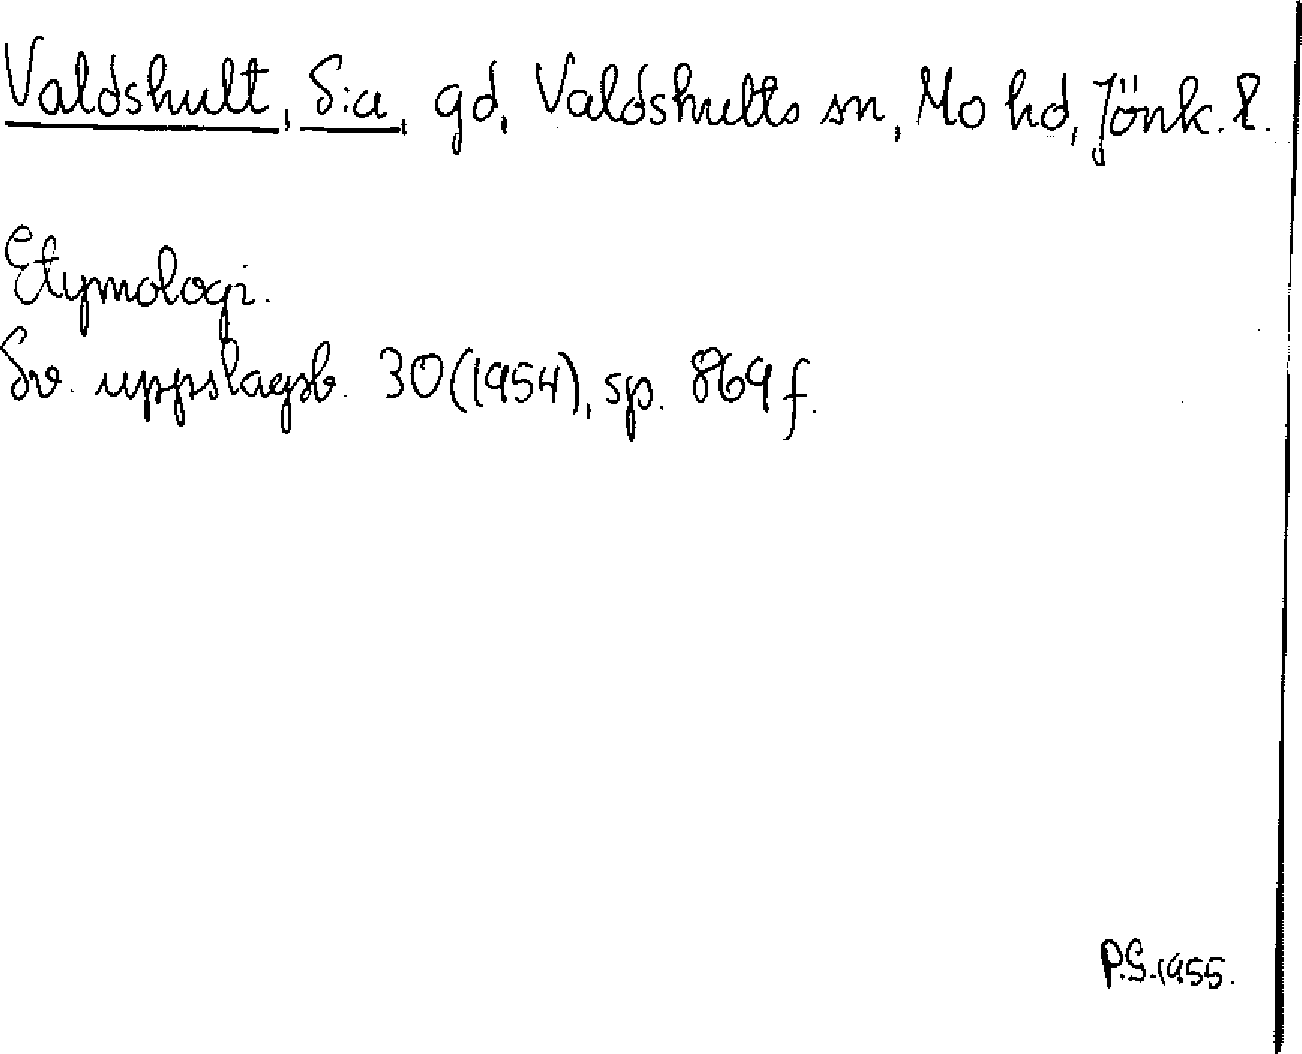 Valdshult, S:a, gd, Valdshults sn, Mo hd, Jönk. l.
Etymologi.
Sv. uppslagsb. 30 (1954), sp. 869 f.
P.G. 1955.